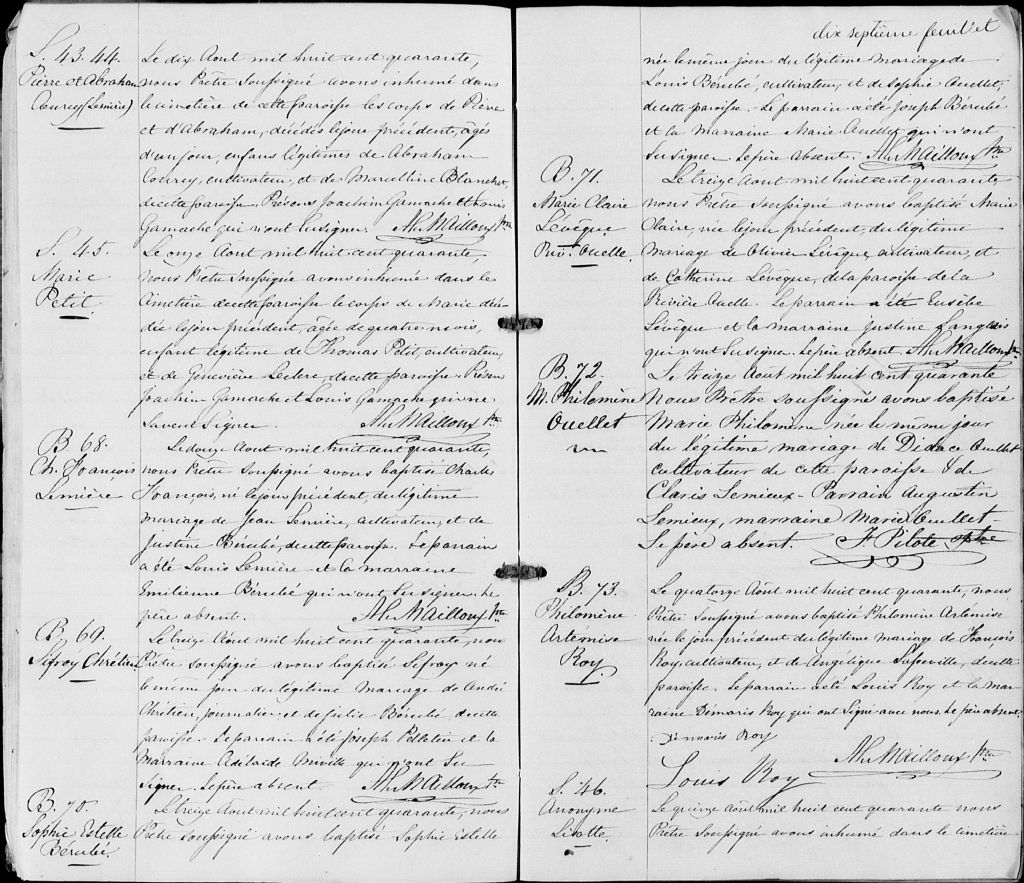 S. 43. 44.
Pierre et Abraham
Courcy (Lemière)
Le dix Aout mil huit cent quarante,
nous Prêtre Soussigné avons inhumé dans
le cimetière de cette paroisse les corps de Pierre
et d'Abraham, décédés le jour précédent, âgés
d'un jour, enfans légitimes de Abraham
Courcy, cultivateur, et de Marcelline Blanchet,
de cette paroisse. Présens Joachim Gamache et Louis
Gamache qui n'ont su signer. Alx. Mailloux Ptre
S. 45.
Marie
Petit.
Le onze Aout mil huit cent quarante,
nous Prêtre Soussigné avons inhumé dans le
cimetière de cette paroisse le corps de Marie décé-
dée le jour précédent, âgée de quatre mois,
enfant légitime de Thomas Petit, cultivateur,
et de Geneviève Leclerc, de cette paroisse. Présens
Joachim Gamache et Louis Gamache qui ne
savent signer. Alx. Mailloux Ptre
B. 68.
Ch. François
Lemière
Le douze Aout mil huit cent quarante,
nous Prêtre Soussigné avons baptisé Charles
François, né le jour précédent, du légitime
mariage de Jean Lemière, cultivateur, et de
Justine Bérubé, de cette paroisse. Le parrain
a été Louis Lemière et la marraine
Emilienne Bérubé qui n'ont su signer. Le
père absent. Alx. Mailloux Ptre
B. 69.
Sifroy Chrétien
Le treize Aout mil huit cent quarante, nous
Prêtre Soussigné avons baptisé Sifroy né
le même jour du légitime mariage de André
Chrétien, journalier, et de Julie Bérubé, de cette
paroisse. Le parrain a été Joseph Pelletier et la
Marraine Adélaïde Miville qui n'ont su
signer. Le père absent. Alx. Mailloux Ptre
B. 70.
Sophie Estelle
Bérubé.
Le treize Aout mil huit cent quarante, nous
Prêtre Soussigné avons baptisé Sophie Estelle
dix septième feuillet
née le même jour du légitime mariage de
Louis Bérubé, cultivateur, et de Sophie Ouellet,
de cette paroisse. Le parrain a été Joseph Bérubé
et la Marraine Marie Ouellet qui n'ont
su signer. Le père absent. Alx. Mailloux Ptre
B. 71.
Marie Claire
Lévêque
Riv. Ouelle
Le treize Aout mil huit cent quarante
nous Prêtre Soussigné avons baptisé Marie
Claire, née le jour précédent, du légitime
mariage de Olivier Lévêque, cultivateur, et
de Catherine Lévêque, de la paroisse de la
Rivière Ouelle. Le parrain a été Eusèbe
Lévêque et la marraine Justine Langlais
qui n'ont su signer. Le père absent. Alx. Mailloux Ptre
B. 72.
M. Philomène
Ouellet
Le treize Aout mil huit cent quarante
Nous Prêtre soussigné avons baptisé
Marie Philomène née le même jour
du légitime mariage de Didace Ouellet
cultivateur de cette paroisse & de
Claris Lemieux. Parrain Augustin
Lemieux, marraine Marie Ouellet.
Le père absent. F. Pilote Ptre
B. 73.
Philomène
Artémise
Roy.
Le quatorze Aout mil huit cent quarante, nous
Prêtre Soussigné avons baptisé Philomène Artémise
née le jour précédent du légitime mariage de François
Roy, cultivateur, et de Angélique, de cette
paroisse. Le parrain a été Louis Roy et la mar-
raine Démaris Roy qui ont signé avec nous. Le père absent.
Dimaris Roy
Louis Roy Alx. Mailloux Ptre
S. 46.
Anonyme
Lisotte.
Le quinze Aout mil huit cent quarante nous
Prêtre Soussigné avons inhumé dans le cimetière